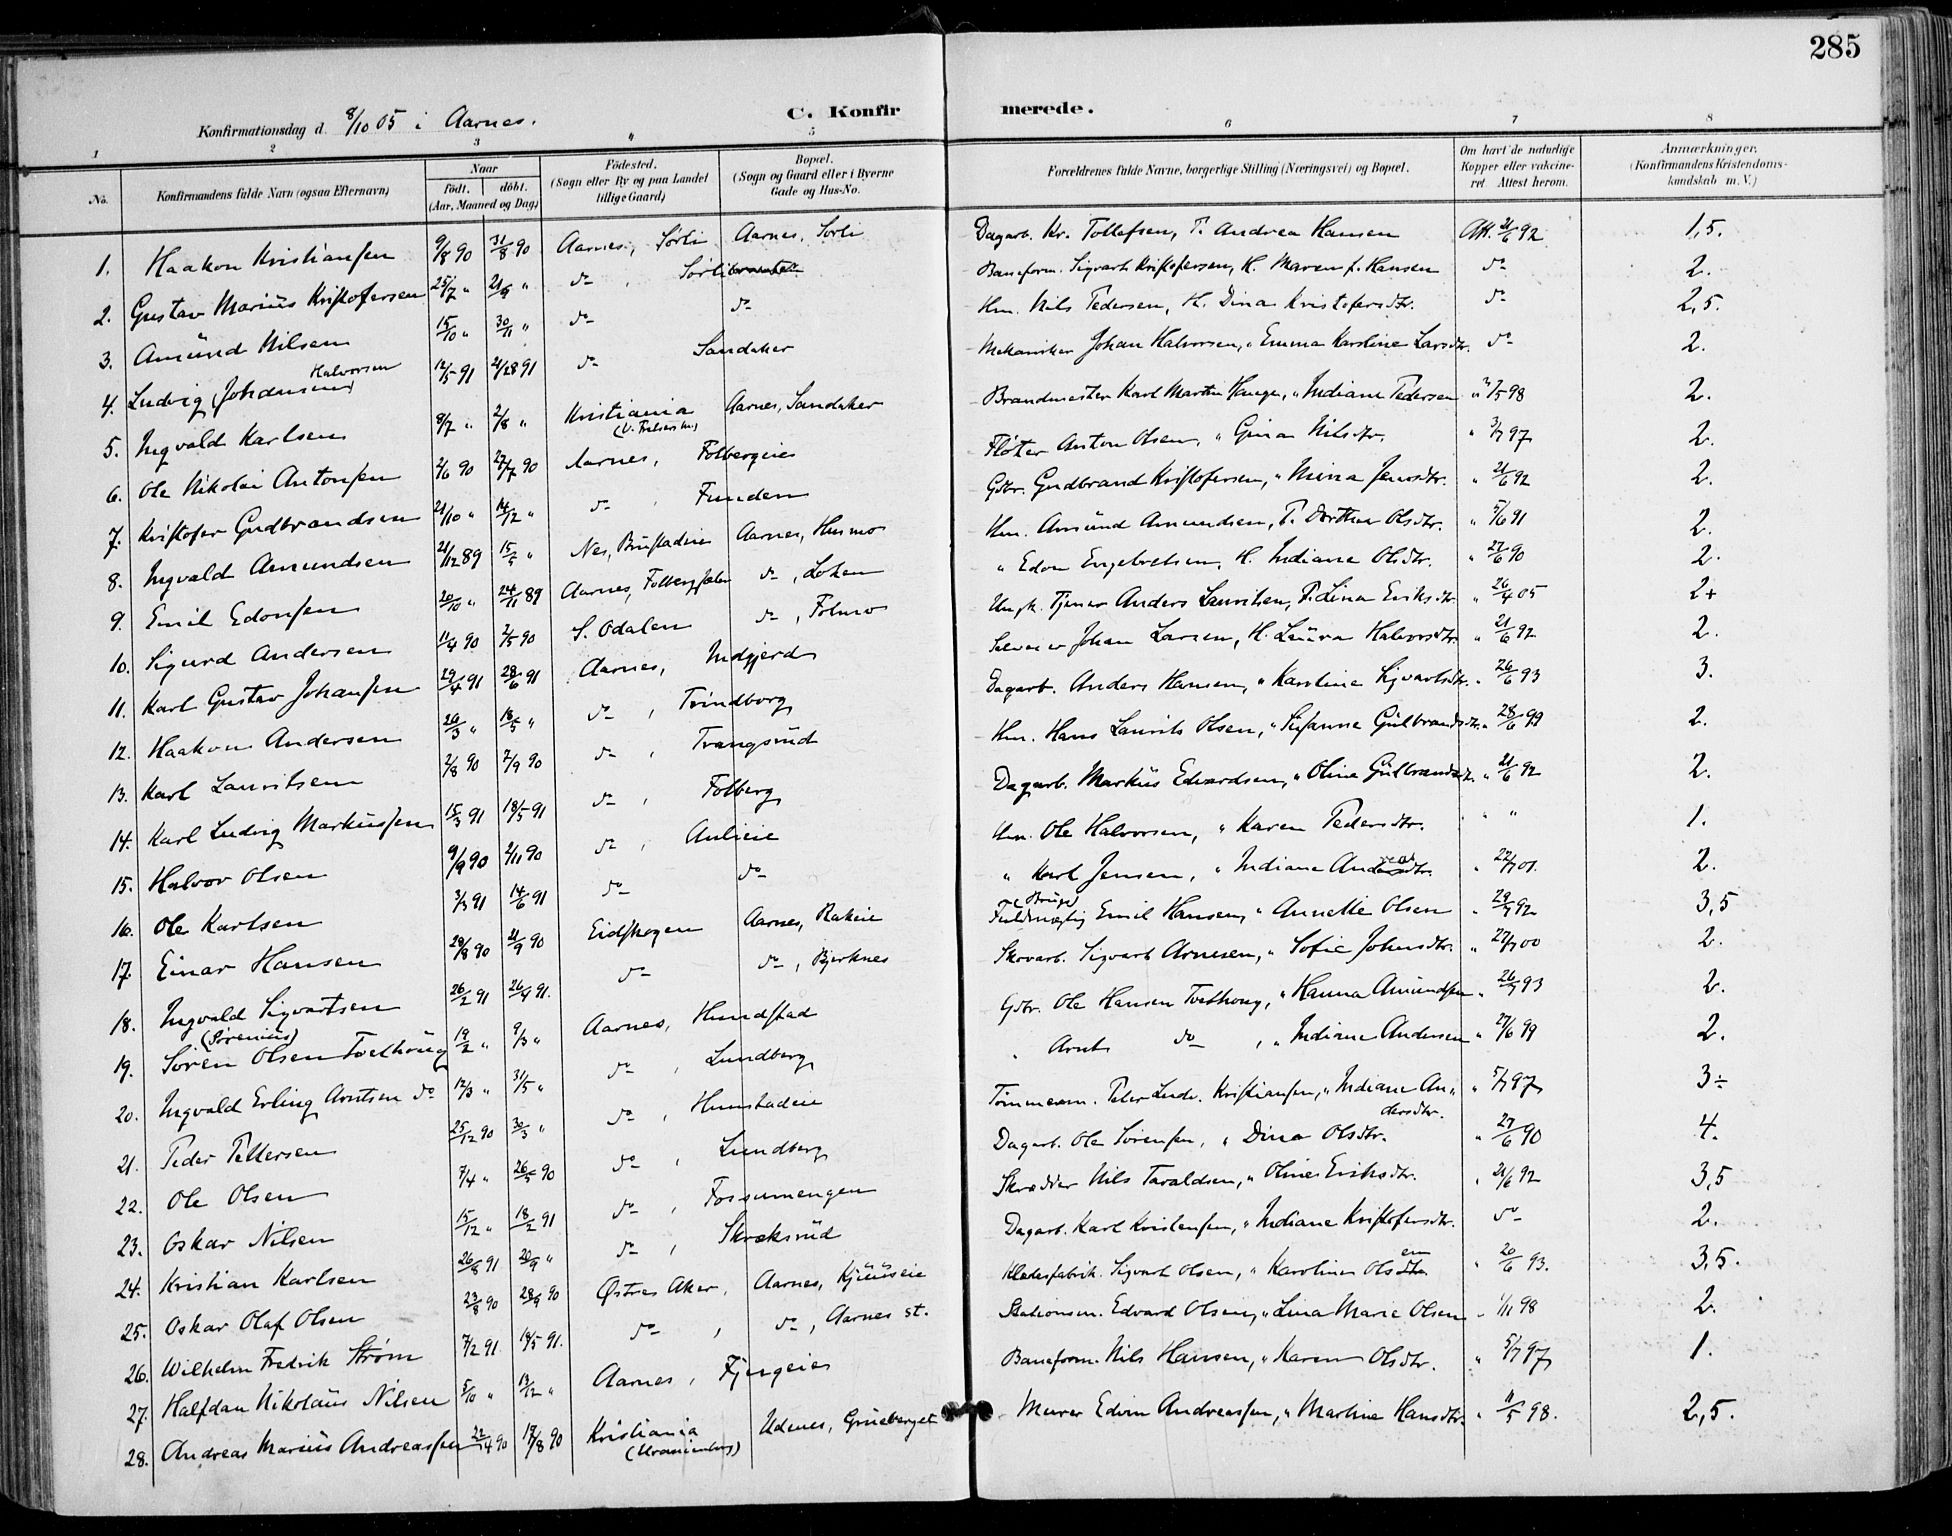 285
Konfirmationsdag d. 8/10 05 i Aarnes.
C. Konfirmerede.
1 2 3 4 5 6 7 8
No. Konfirmandens fulde Navn (ogsaa Efternavn) Naar født. døbt. (Aar, Maaned og Dag) Fødested. (Sogn eller By og paa Landet tillige Gaard) Bopæl. (Sogn og Gaard eller i Byerne Gade og Hus-No. Forældrenes fulde Navne, borgerlige Stilling (Næringsvei) og Bopæl. Om havt de naturlige Kopper eller vakcineret Attest herom. Anmærkninger. (Konfirmandens Kristendomskundskab m. V.)
1. Haakon Kristiansen 9/8 90 31/8 90 Aarnes, Sørli Aarnes, Sørli Dagarb. Kr. Tollefsen, P. Andrea Hansen Att. 21/6 92 1,5.
2. Gustav Marius Kristofersen 25/7 " 21/9 " do, Sørlibraaten Baneform. Sigvart Kristofersen, H. Maren f. Hansen do 2.
3. Amund Nilsen 15/10 " 30/11 " do do Hm. Nils Pedersen, H. Dina Kristofersdtr. do 2,5.
4. Ludvig Johansen Halvorsen 12/5 91 2/28 91 do Sandaker Mekaniker Johan Halvorsen, " Emma Karoline Larsdtr. do 2.
5. Ingvald Karlsen 8/7 " 2/8 " Kristiania (V. Frelsers m.) Aarnes, Sandaker Brandmester Karl Martin Hauge, " Indiane Pedersen " 3/5 98 2.
6. Ole Nikolai Antonsen 2/6 90 27/7 90 Aarnes, Folbergeie Fløter Anton Olsen, " Gina Nilsdtr. " 3/7 97 2.
7. Kristofer Gudbrandsen 21/10 " 14/12 " do, Funden Gbr. Gudbrand Kristofersen, " Mina Jensdtr. " 21/6 92 2.
8. Ingvald Amundsen 21/12 89 15/5 " Nes, Brustadeie Aarnes, Husmo Hm. Amund Amundsen, P. Dorthea Olsdtr. " 5/6 91 2.
9. Emil Edonsen 20/10 " 24/11 89 Aarnes, Folbergsæter do, Loken " Edon Engebretsen, H. Indiane Olsdtr. " 27/6 90 2.
10. Sigurd Andersen 11/4 90 2/5 90 S. Odalen do, Folmo Ungk. Tjener Anders Lauritsen, P. Lina Eriksdtr. " 26/4 05 2+
11. Karl Gustav Johansen 29/4 91 28/6 91 Aarnes, Indgjerd Johan Larsen, H. Laura Halvorsdtr. " 21/6 92 2.
12. Haakon Andersen 26/3 " 18/5 " do, Trindborg Dagarb. Anders Hansen, " Karoline Sigvartsdtr. " 26/6 93 3.
13. Karl Lauritsen 2/8 90 7/9 90 do, Trangsrud Hm. Hans Laurits Olsen, " Susanne Gulbrandsdtr. " 28/6 99 2.
14. Karl Ludvig Markussen 15/3 91 18/5 91 do, Folberg Dagarb. Markus Edvardsen, " Oline Gulbrandsdtr. " 21/6 92 2.
15. Halvor Olsen 9/9 90 2/11 90 do, Aulieie Hm. Ole Halvorsen, " Karen Pedersdtr. " " 1.
16. Ole Karlsen 3/3 91 14/6 91 do do " Karl Jensen, " Indiane Andreasdtr. " 22/7 01. 2.
17. Einar Hansen 29/8 90 21/9 90 Eidskogen Aarnes, Rakeie Fuldmægtig Emil Hansen, " Annette Olsen " 29/7 92 3,5
18. Ingvald Sigvartsen 26/2 91 26/4 91. do do, Bjerknes Skovarb. Sigvart Arnesen, " Sofie Johnsdtr. " 27/7 00 2.
19. Søren (Sørenius) Olsen Tvethoug 19/2 " 9/3 " Aarnes, Hundstad Gbr. Ole Hansen Tvethoug, " Hanna Amundsen " 26/7 93 2.
20. Ingvald Erling Arntsen do 12/3 " 31/5 " do, Lundberg " Arnt do, " Indiane Andersen " 27/6 99 2.
21. Peder Pettersen 25/12 90 30/3 " do, Hunstadeie Tømmerm. Peter Ludv. Kristiansen, " Indiane Andersdtr. " 5/7 97 3÷
22. Ole Olsen 7/4 " 26/5 90 do, Lundberg Dagarb. Ole Sørensen, " Dina Olsdtr. " 27/6 90 4.
23. Oskar Nilsen 15/12 " 18/2 91 do, Fossumengen Skredder Nils Taraldsen, " Oline Eriksdtr. " 21/6 92 3,5
24. Kristian Karlsen 26/8 91 20/9 " do, Skræksrud Dagarb. Karl Kristensen, " Indiane Kristofersdtr. do 2.
25. Oskar Olaf Olsen 23/8 90 28/9 90 Østre Aker, Aarnes, Kjuuseie Klædesfabrik. Sigvart Olsen, " Karoline Olsen " 20/6 93. 3,5.
26. Wilhelm Fredrik Strøm 7/2 91 18/5 91. do, do, Aarnes st. Stationsm. Edvard Olsen, " Lina Marie Olsen " 1/11 98 2.
27. Halfdan Nikolaus Nilsen 5/10 " 13/12 " Aarnes, Fjugeie Baneform. Nils Hansen, " Karen Olsdtr. " 5/7 97 1.
28. Andreas Marius Andreassen 22/4 90 17/8 90 Kristiania (Uranienborg) Udenes, Grueberget Murer Edvin Andreassen, " Martine Hansdtr. " 11/5 98. 2,5.